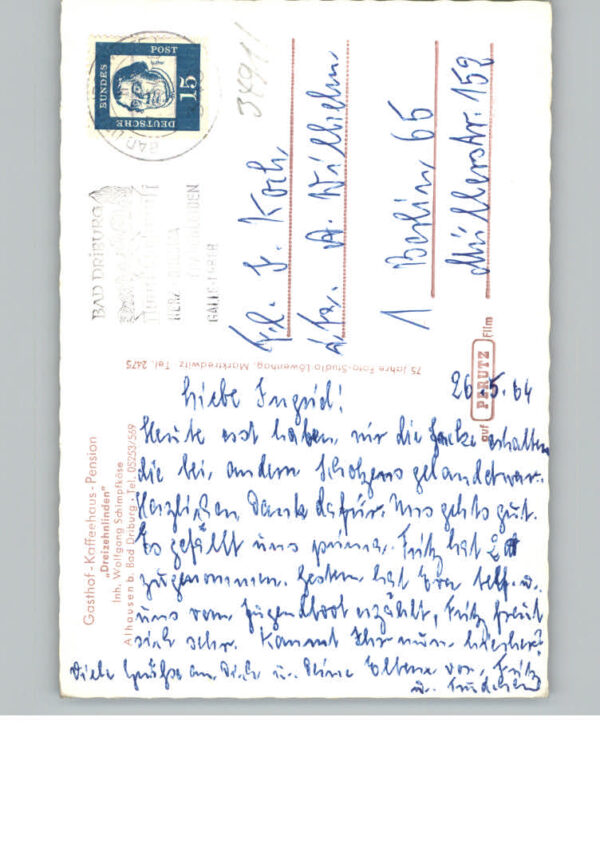 Liebe Ingrid!
26.5.64
Heute erst haben wir die Jacke erhalten
die bei andern Scholzens gelandet war.
Herzlichen Dank dafür. Uns gehts gut.
Es gefällt uns prima. Fritz hat 2 ℔
zugenommen. Gestern hat Eva telf. u.
uns vom Jugendboot erzählt, Fritz freut
sich sehr. Kommt Ihr nun hierher?
Viele Grüße an Dich u. Deine Eltern von Fritz
u. Trudchen
Frl. I. Koch
b. Fa. A. Wilhelm
1 Berlin 65
Müllerstr. 159
34911
DEUTSCHE
BUNDES
POST
15
BAD DRIBURG
HERZ RHEUMA
GALLE LEBER
Gasthof - Kaffeehaus - Pension
„Dreizehnlinden"
Inh. Wolfgang Schimpfköse
Alhausen b. Bad Driburg · Tel. 05253/569
75 Jahre Foto-Studio Löwenhag, Marktredwitz Tel. 2475
auf PERUTZ Film